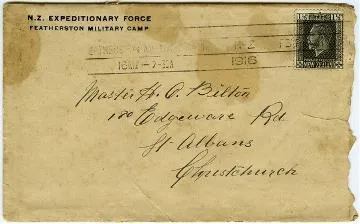 N.Z. EXPEDITIONARY FORCE
FEATHERSTON MILITARY CAMP
N Z
1916
Master H. O. Bilton
180 Edgeware Rd
St Albans
Christchurch